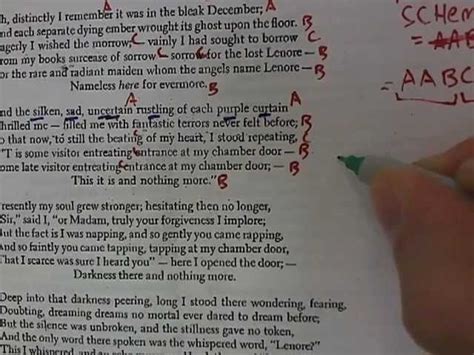 h, distinctly I remember it was in the bleak December; A
A
nd each separate dying ember wrought its ghost upon the floor. B
agerly I wished the morrow; C vainly I had sought to borrow C
from my books surcease of sorrow C sorrow for the lost Lenore— B
or the rare and radiant maiden whom the angels name Lenore— B
Nameless here for evermore. B
SCHEM
= AAB
= AABC
A
nd the silken, sad, uncertain rustling of each purple curtain A
hrilled me — filled me with fantastic terrors never felt before; B
o that now, to still the beating C of my heart, I stood repeating, C
"T is some visitor entreating C entrance at my chamber door — B
ome late visitor entreating entrance at my chamber door; — B
This it is and nothing more." B
resently my soul grew stronger; hesitating then no longer,
Sir," said I, "or Madam, truly your forgiveness I implore;
ut the fact is I was napping, and so gently you came rapping,
And so faintly you came tapping, tapping at my chamber door,
That I scarce was sure I heard you" — here I opened the door; —
Darkness there and nothing more.
Deep into that darkness peering, long I stood there wondering, fearing,
Doubting, dreaming dreams no mortal ever dared to dream before;
But the silence was unbroken, and the stillness gave no token,
And the only word there spoken was the whispered word, "Lenore?"
This I whispered, and an echo